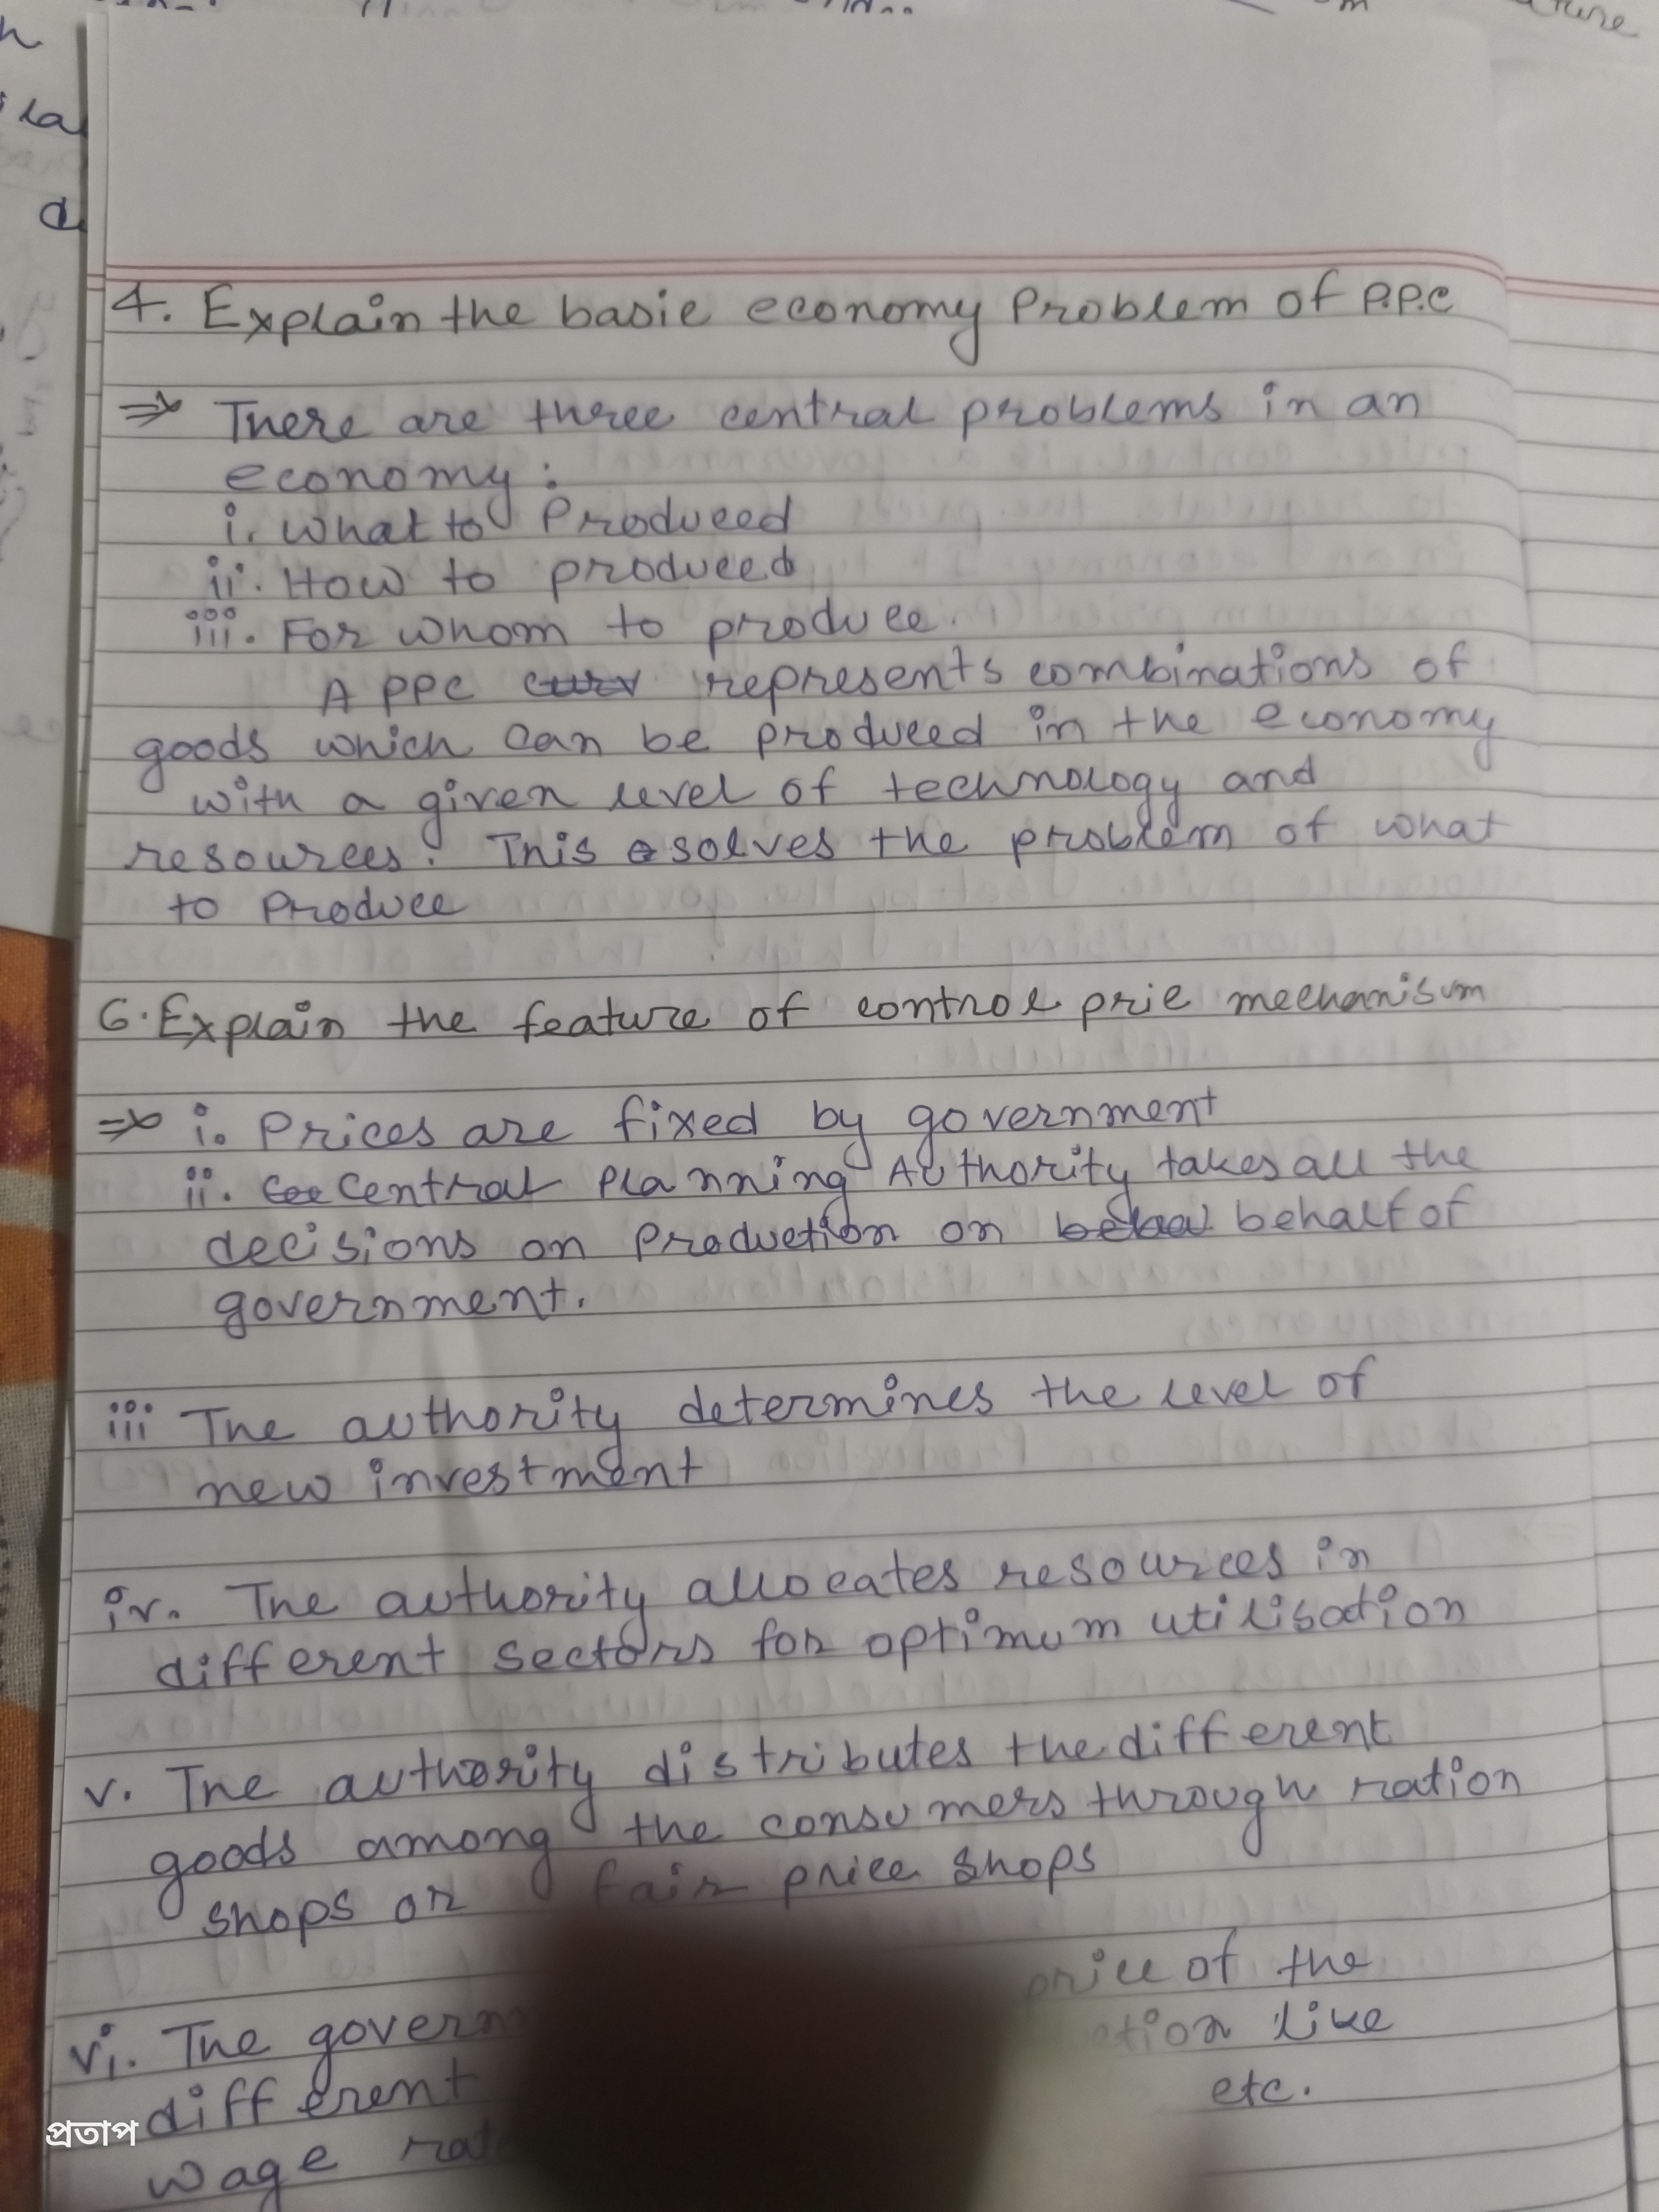 4. Explain the basic economy Problem of P.P.C
⇒ There are three central problems in an
economy:
i. What to Produced
ii. How to produced
iii. For whom to produce.
A PPC represents combinations of
goods which can be produced in the economy
with a given level of technology and
resources. This solves the problem of what
to produce
6. Explain the feature of control prie mechanisum
⇒ i. Prices are fixed by government
ii. Central Planning Authority takes all the
decisions on Production on behalf of
government.
iii The authority determines the level of
new investment
iv. The authority allocates resources in
different sectors for optimum utilisation
v. The authority distributes the different
goods among the consumers through ration
shops or fair price shops
vi. The govern price of the
different ction like
wage rat etc.
প্রতাপ